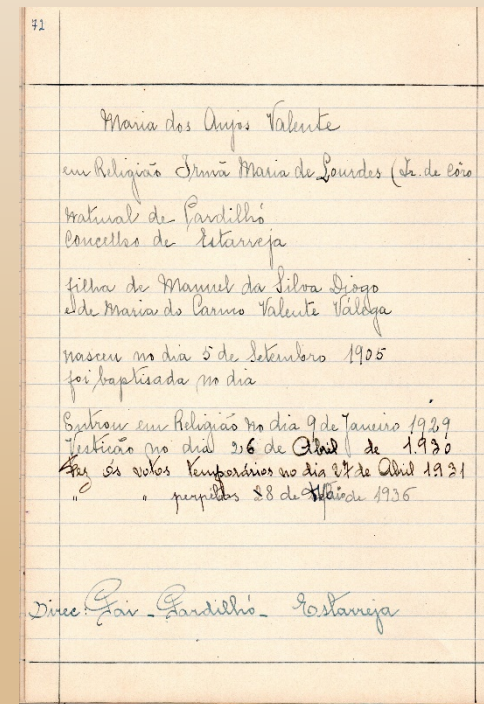 72
Maria dos Anjos Valente
em Religião Irmã Maria de Lourdes (Ir. de côro
Natural de Pardilhó
Concelho de Estarreja
filha de Manuel da Silva Diogo
e de Maria do Carmo Valente Válega
nasceu no dia 5 de Setembro 1905
foi baptisada no dia
Entrou em Religião no dia 9 de Janeiro 1929
Vestição no dia 26 de Abril de 1.930
Fez os votos temporários no dia 27 de Abril 1931
" " perpétos 28 de Maio de 1936
Direc: Pai - Pardilhó - Estarreja